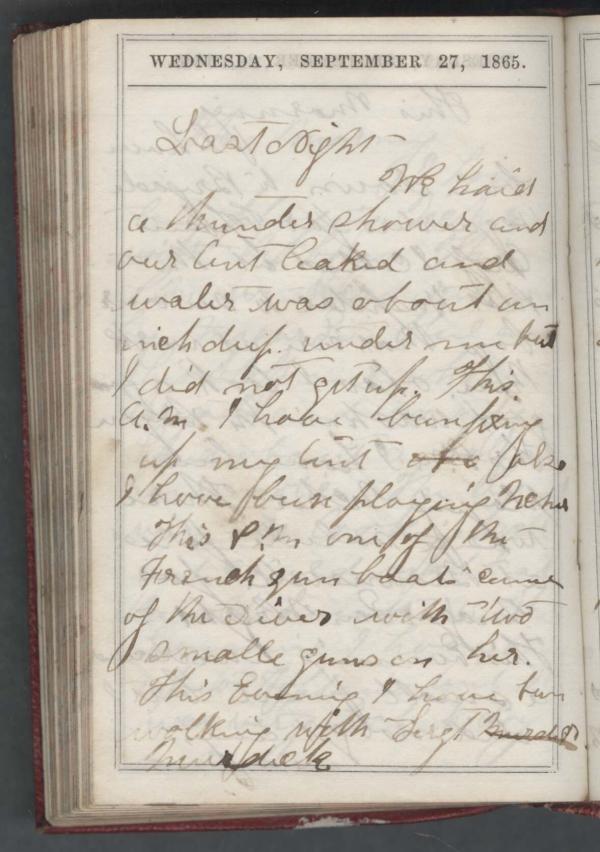 WEDNESDAY, SEPTEMBER 27, 1865.
Last Night
We had
a thunder shower and
our tent leaked and
water was about an
inch deep under me but
I did not get up. This.
A.M. I have been fixing
up my tent also
I have been playing
This P.M. one of the
French gun boats came
of the river with two
smalle guns on her.
This Evening I have been
walking with Sergt